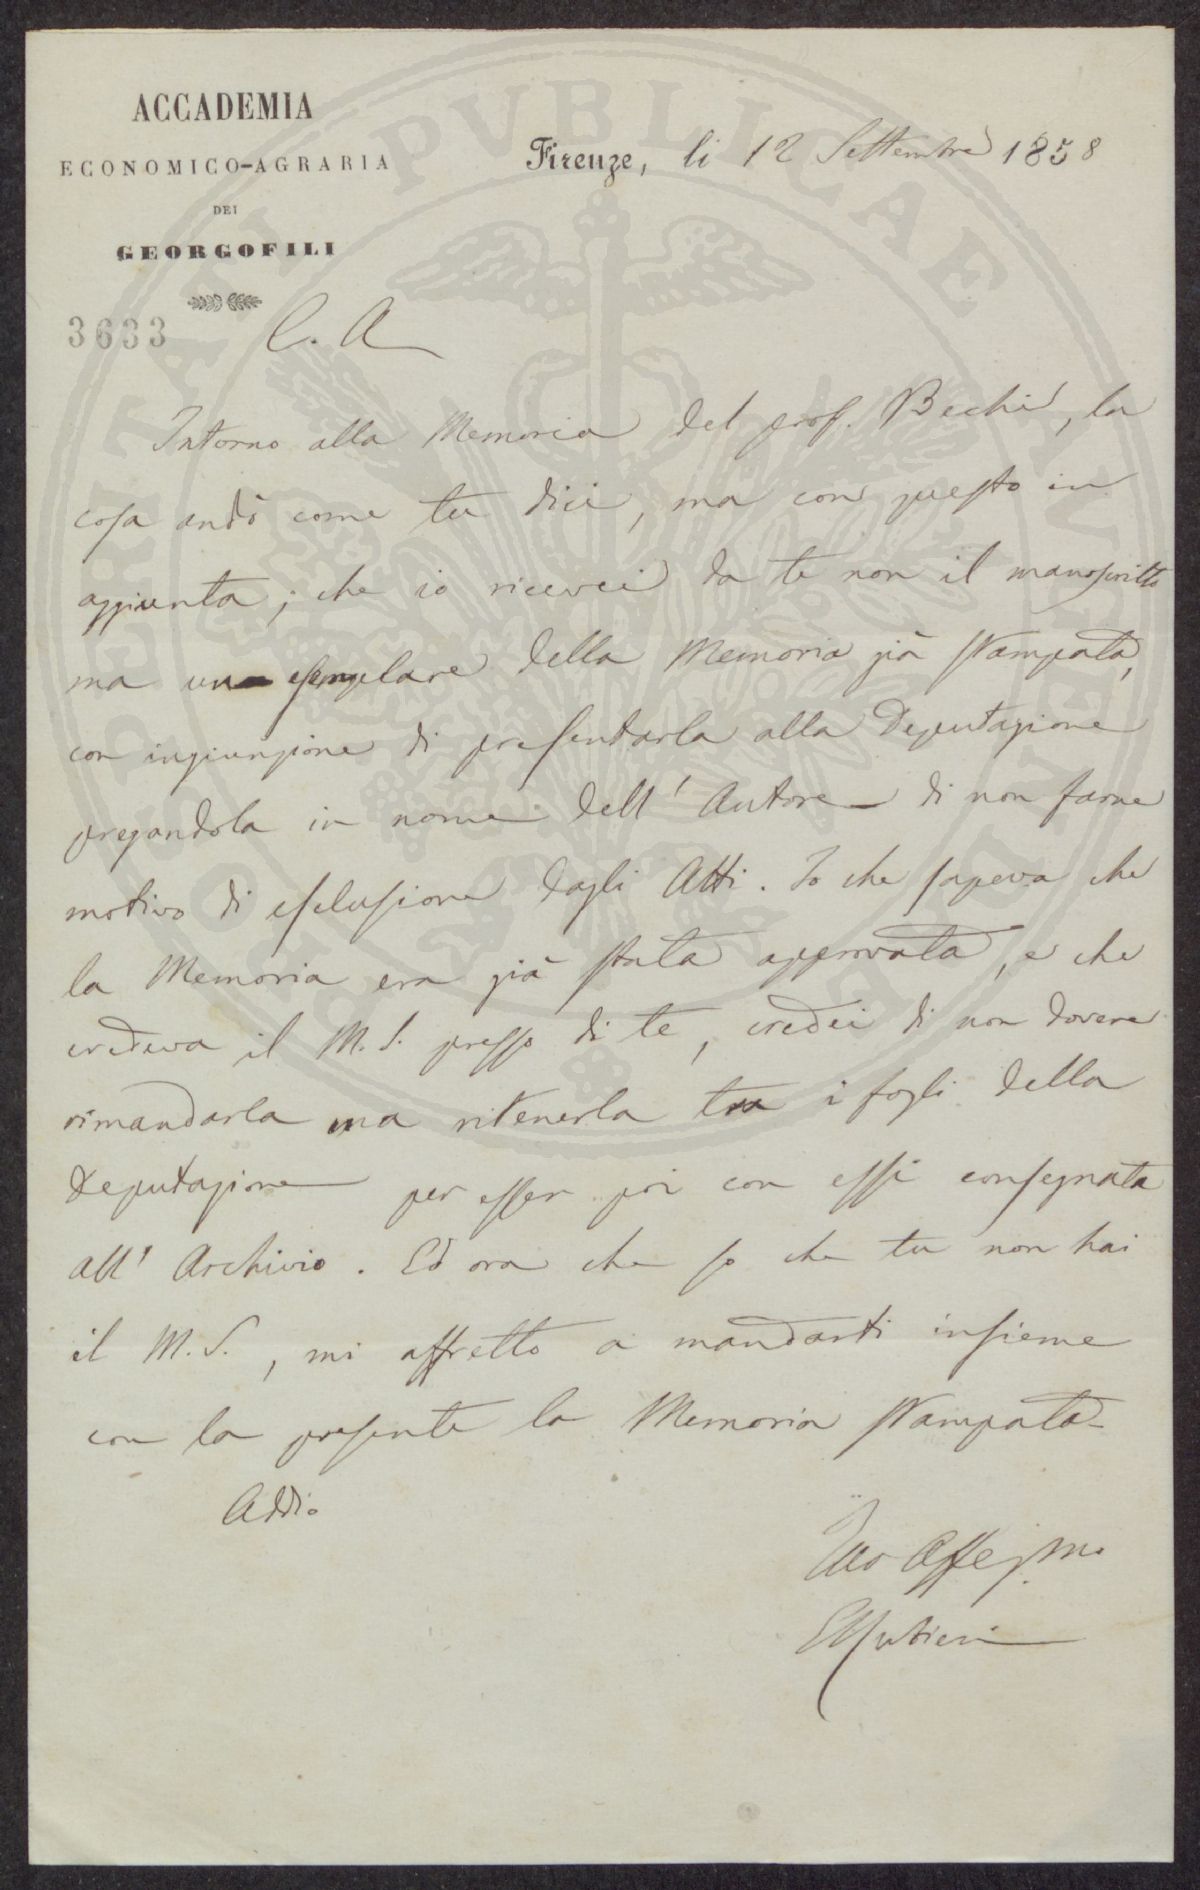 ACCADEMIA
ECONOMICO-AGRARIA
DEI
GEORGOFILI
Firenze, li 12 Settembre 1858
3633
C. A
Intorno alla Memoria del prof. Bechi, la
cosa andò come tu dici, ma con questo in
aggiunta; che io ricevei da te non il manoscritto
ma un esemplare della Memoria già stampata,
con ingiunzione di presentarla alla Deputazione
pregandola in nome dell' Autore di non farne
motivo di esclusione dagli Atti. Io che sapeva che
la Memoria era già stata approvata, e che
credeva il M. S. presso di te, credei di non dovere
rimandarla ma ritenerla tra i fogli della
Deputazione per esser poi con essi consegnata
all' Archivio. Ed ora che so che tu non hai
il M. S., mi affretto a mandarti insieme
con la presente la Memoria stampata
Addio
Tuo Affezmo